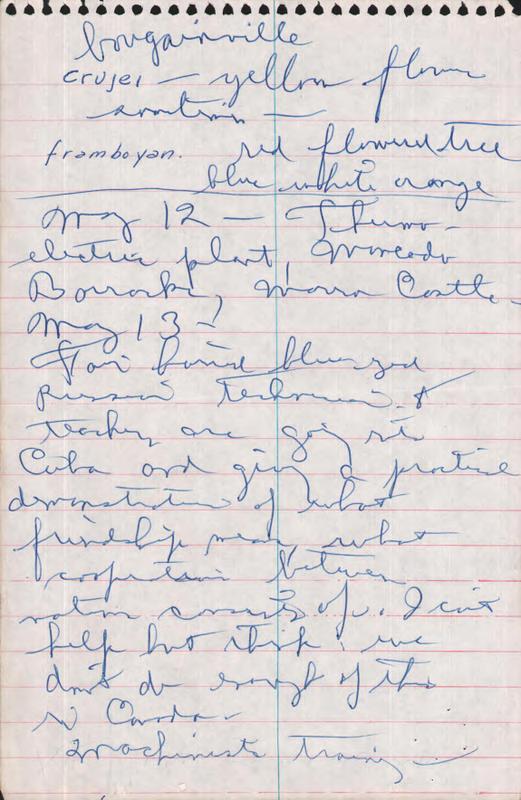 bougainville
crujel — yellow flower
framboyan. red flowered tree
blue white orange
May 12 — Thermo-
electric plant, Mercado
Morro Castle -
May 13 -
Fair haired blue eyed
Russian technicians &
teachers are going into
Cuba and giving a practical
demonstration of what
friendship means, what
cooperation between
nations consists of. I can't
help but think: we
don't do enough of this
in Canada -
Machinists training —